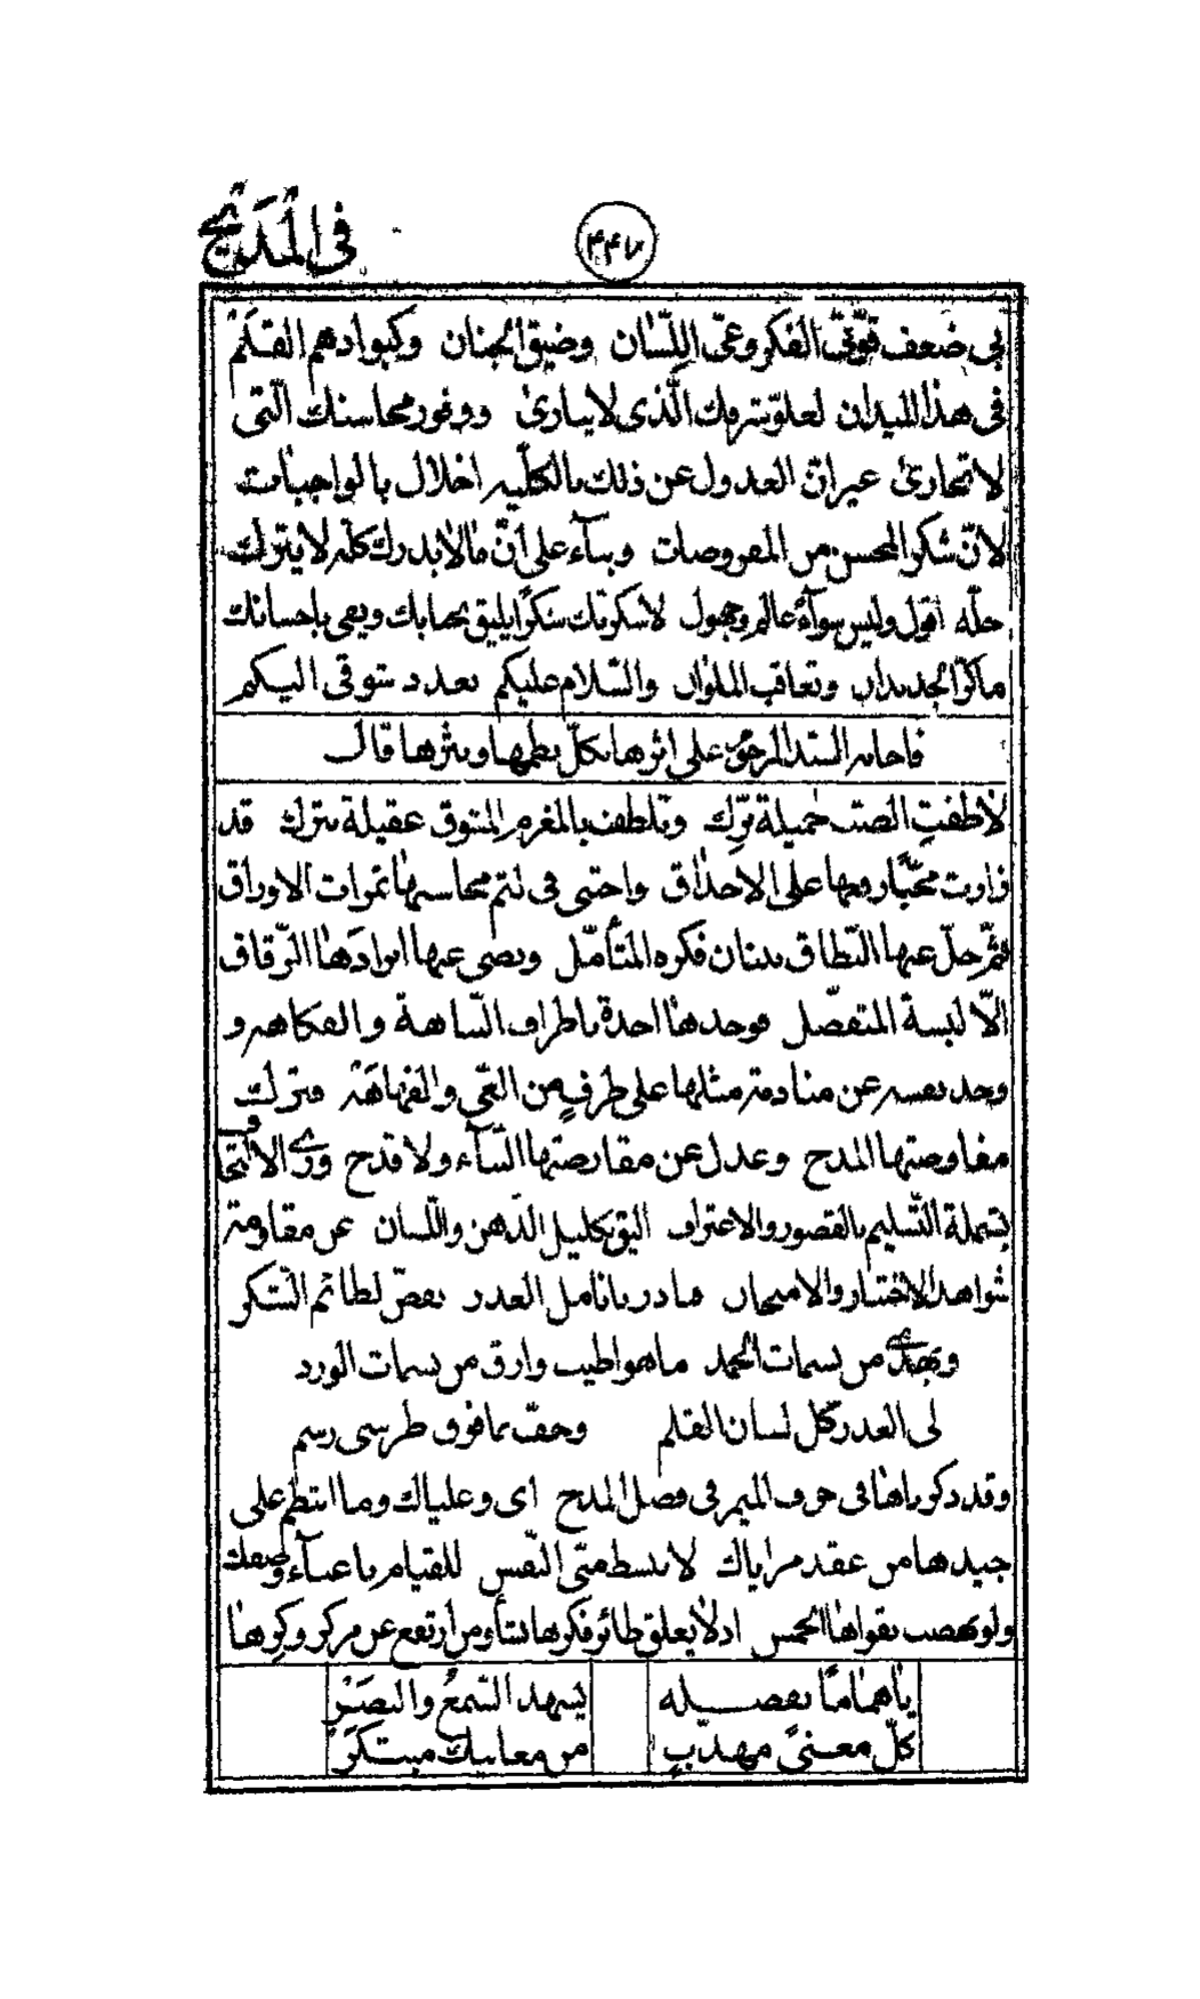 في المديح
٤٤٧
بي ضعف قوّتي الفكر وعيّ اللّسان وضيق الجنان وكبو ادهم القلم
في هذا الميدان لعلوّ شرفك الّذي لا يبارى ووفور محاسنك الّتي
لا تجارى غير انّ العدول عن ذلك بالكلّيه اخلال بالواجبات
لانّ شكر المحسن من المفروضات وبنآء على انّ ما لا يدرك كلّه لا يترك
جلّه اقول وليس سوآءً عالم وجهول لاشكرنّك شكرًا يليق بجنابك ويفي بإحسانك
ما كرّ الجديدان وتعاقب الملوان والسّلام عليكم بعدد شوقي اليكم
فاجابه السيّد المرحوم على اثرها بكلّ نظمها ونثرها قال
لاطفت الصبّ خميلة برّك وتلطف بالمغرم المشوق عقيلة نثرك قد
زارت محبًّا رفعها على الاحداق واجتنى في لثم محاسنها ثمرات الاوراق
ثمّ حلّ عنها النّطاق ببنان فكره المتأمّل ونضى عنها ابرادها الرّقاق
الّا لبسة المتفضّل فوجدها اخذة باطراف النّباهة والفكاهه و
وجد نفسه عن منادمة مثلها على طرفٍ من العيّ والفهاهة فترك
مفاوضتها المدح وعدل عن مقارضتها الثنآء ولا قدح ورأى الالتحا
بشملة التّسليم بالقصور والاعتراف اليق بكليل الذّهن واللّسان عن مقاومة
شواهد الاختبار والامتحان فبادر بانامل العذر يفضّ لطائم الشكر
ويهدي من نسمات الحمد ما هو اطيب وارق من نسمات الورد
لي العذر كلّ لسان القلم وجفّ بما فوق طرسي رسم
وقد ذكرناها في حرف الميم في فصل المدح اى وعلياك وما انتظم على
جيدها من عقد مزاياك لا تنسط منّي النّفس للقيام باعبآء وصفك
ولو نهضت بقواها الخمس اذ لا يعلق طائر فكرها بشأو من ارتفع عن مركز وكرها
يا هماما بفضله يشهد السّمع والبصر
كلّ معنىً مهذّبٍ من معانيك مبتكر